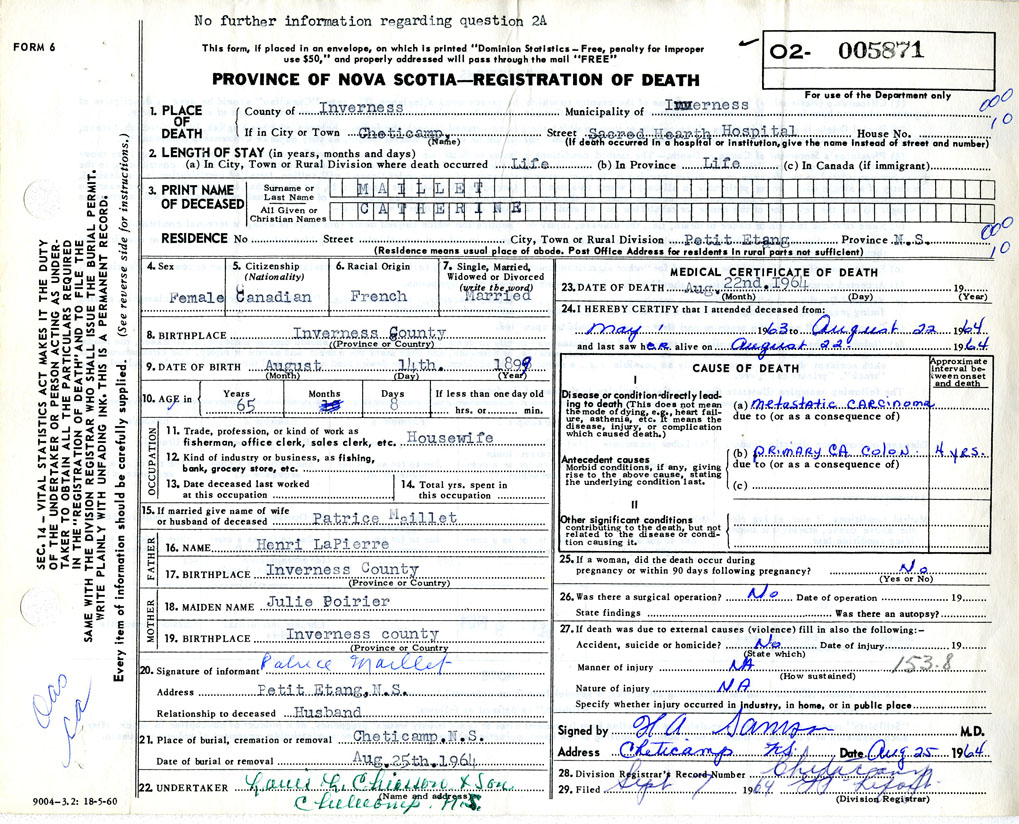 No further information regarding question 2A
FORM 6
This form, if placed in an envelope, on which is printed "Dominion Statistics – Free, penalty for improper
use $50," and properly addressed will pass through the mail "FREE"
O2- 005871
PROVINCE OF NOVA SCOTIA—REGISTRATION OF DEATH
For use of the Department only
SEC. 14 – VITAL STATISTICS ACT MAKES IT THE DUTY
OF THE UNDERTAKER OR PERSON ACTING AS UNDER-
TAKER TO OBTAIN ALL THE PARTICULARS REQUIRED
IN THE "REGISTRATION OF DEATH" AND TO FILE THE
SAME WITH THE DIVISION REGISTRAR WHO SHALL ISSUE THE BURIAL PERMIT.
WRITE PLAINLY WITH UNFADING INK. THIS IS A PERMANENT RECORD.
Every item of information should be carefully supplied. (See reverse side for instructions.)
1. PLACE OF DEATH
County of Inverness Municipality of Inverness
000
10
If in City or Town Cheticamp, Street Sacred Hearth Hospital House No.
(Name) (If death occurred in a hospital or institution, give the name instead of street and number)
2. LENGTH OF STAY (in years, months and days)
(a) In City, Town or Rural Division where death occurred Life (b) In Province Life (c) In Canada (if immigrant)
3. PRINT NAME OF DECEASED
Surname or Last Name MAILLET
All Given or Christian Names CATHERINE
RESIDENCE No Street City, Town or Rural Division Petit Etang Province N.S.
000
10
(Residence means usual place of abode. Post Office Address for residents in rural parts not sufficient)
4. Sex
Female
5. Citizenship
(Nationality)
Canadian
6. Racial Origin
French
7. Single, Married,
Widowed or Divorced
(write the word)
Married
8. BIRTHPLACE Inverness County
(Province or Country)
9. DATE OF BIRTH August 14th. 1899
(Month) (Day) (Year)
10. AGE in
Years Months Days If less than one day old
65 8 hrs. or min.
OCCUPATION
11. Trade, profession, or kind of work as
fisherman, office clerk, sales clerk, etc. Housewife
12. Kind of industry or business, as fishing,
bank, grocery store, etc.
13. Date deceased last worked
at this occupation
14. Total yrs. spent in
this occupation
15. If married give name of wife
or husband of deceased Patrice Maillet
FATHER
16. NAME Henri LaPierre
17. BIRTHPLACE Inverness County
(Province or Country)
MOTHER
18. MAIDEN NAME Julie Poirier
19. BIRTHPLACE Inverness county
(Province or Country)
20. Signature of informant Patrice Maillet
Address Petit Etang, N.S.
Relationship to deceased Husband
21. Place of burial, cremation or removal Cheticamp, N.S.
Date of burial or removal Aug. 25th. 1964
22. UNDERTAKER Louis L. Chiasson & Son
(Name and address)
Cheticamp N.S.
9004–3.2: 18-5-60
MEDICAL CERTIFICATE OF DEATH
23. DATE OF DEATH Aug. 22nd. 1964 19
(Month) (Day) (Year)
24. I HEREBY CERTIFY that I attended deceased from:
May 1 1963 to August 22 1964
and last saw her alive on August 22. 1964
CAUSE OF DEATH
Approximate
interval be-
tween onset
and death
I
Disease or condition directly lead-
ing to death (This does not mean
the mode of dying, e.g., heart fail-
ure, asthenia, etc. It means the
disease, injury, or complication
which caused death.)
(a) metastatic CARCinoma
due to (or as a consequence of)
Antecedent causes
Morbid conditions, if any, giving
rise to the above cause, stating
the underlying condition last.
(b) PRIMARY CA COLON 4 yrs.
due to (or as a consequence of)
(c)
II
Other significant conditions
contributing to the death, but not
related to the disease or condi-
tion causing it.
25. If a woman, did the death occur during
pregnancy or within 90 days following pregnancy? No
(Yes or No)
26. Was there a surgical operation? No Date of operation 19
State findings Was there an autopsy?
27. If death was due to external causes (violence) fill in also the following:–
Accident, suicide or homicide? No Date of injury 19
(State which)
Manner of injury NA 153.8
(How sustained)
Nature of injury NA
Specify whether injury occurred in industry, in home, or in public place
Signed by H A Samson M.D.
Address Cheticamp NS Date Aug 25 1964
28. Division Registrar's Record Number Cheticamp
29. Filed Sept 7 1964
(Division Registrar)